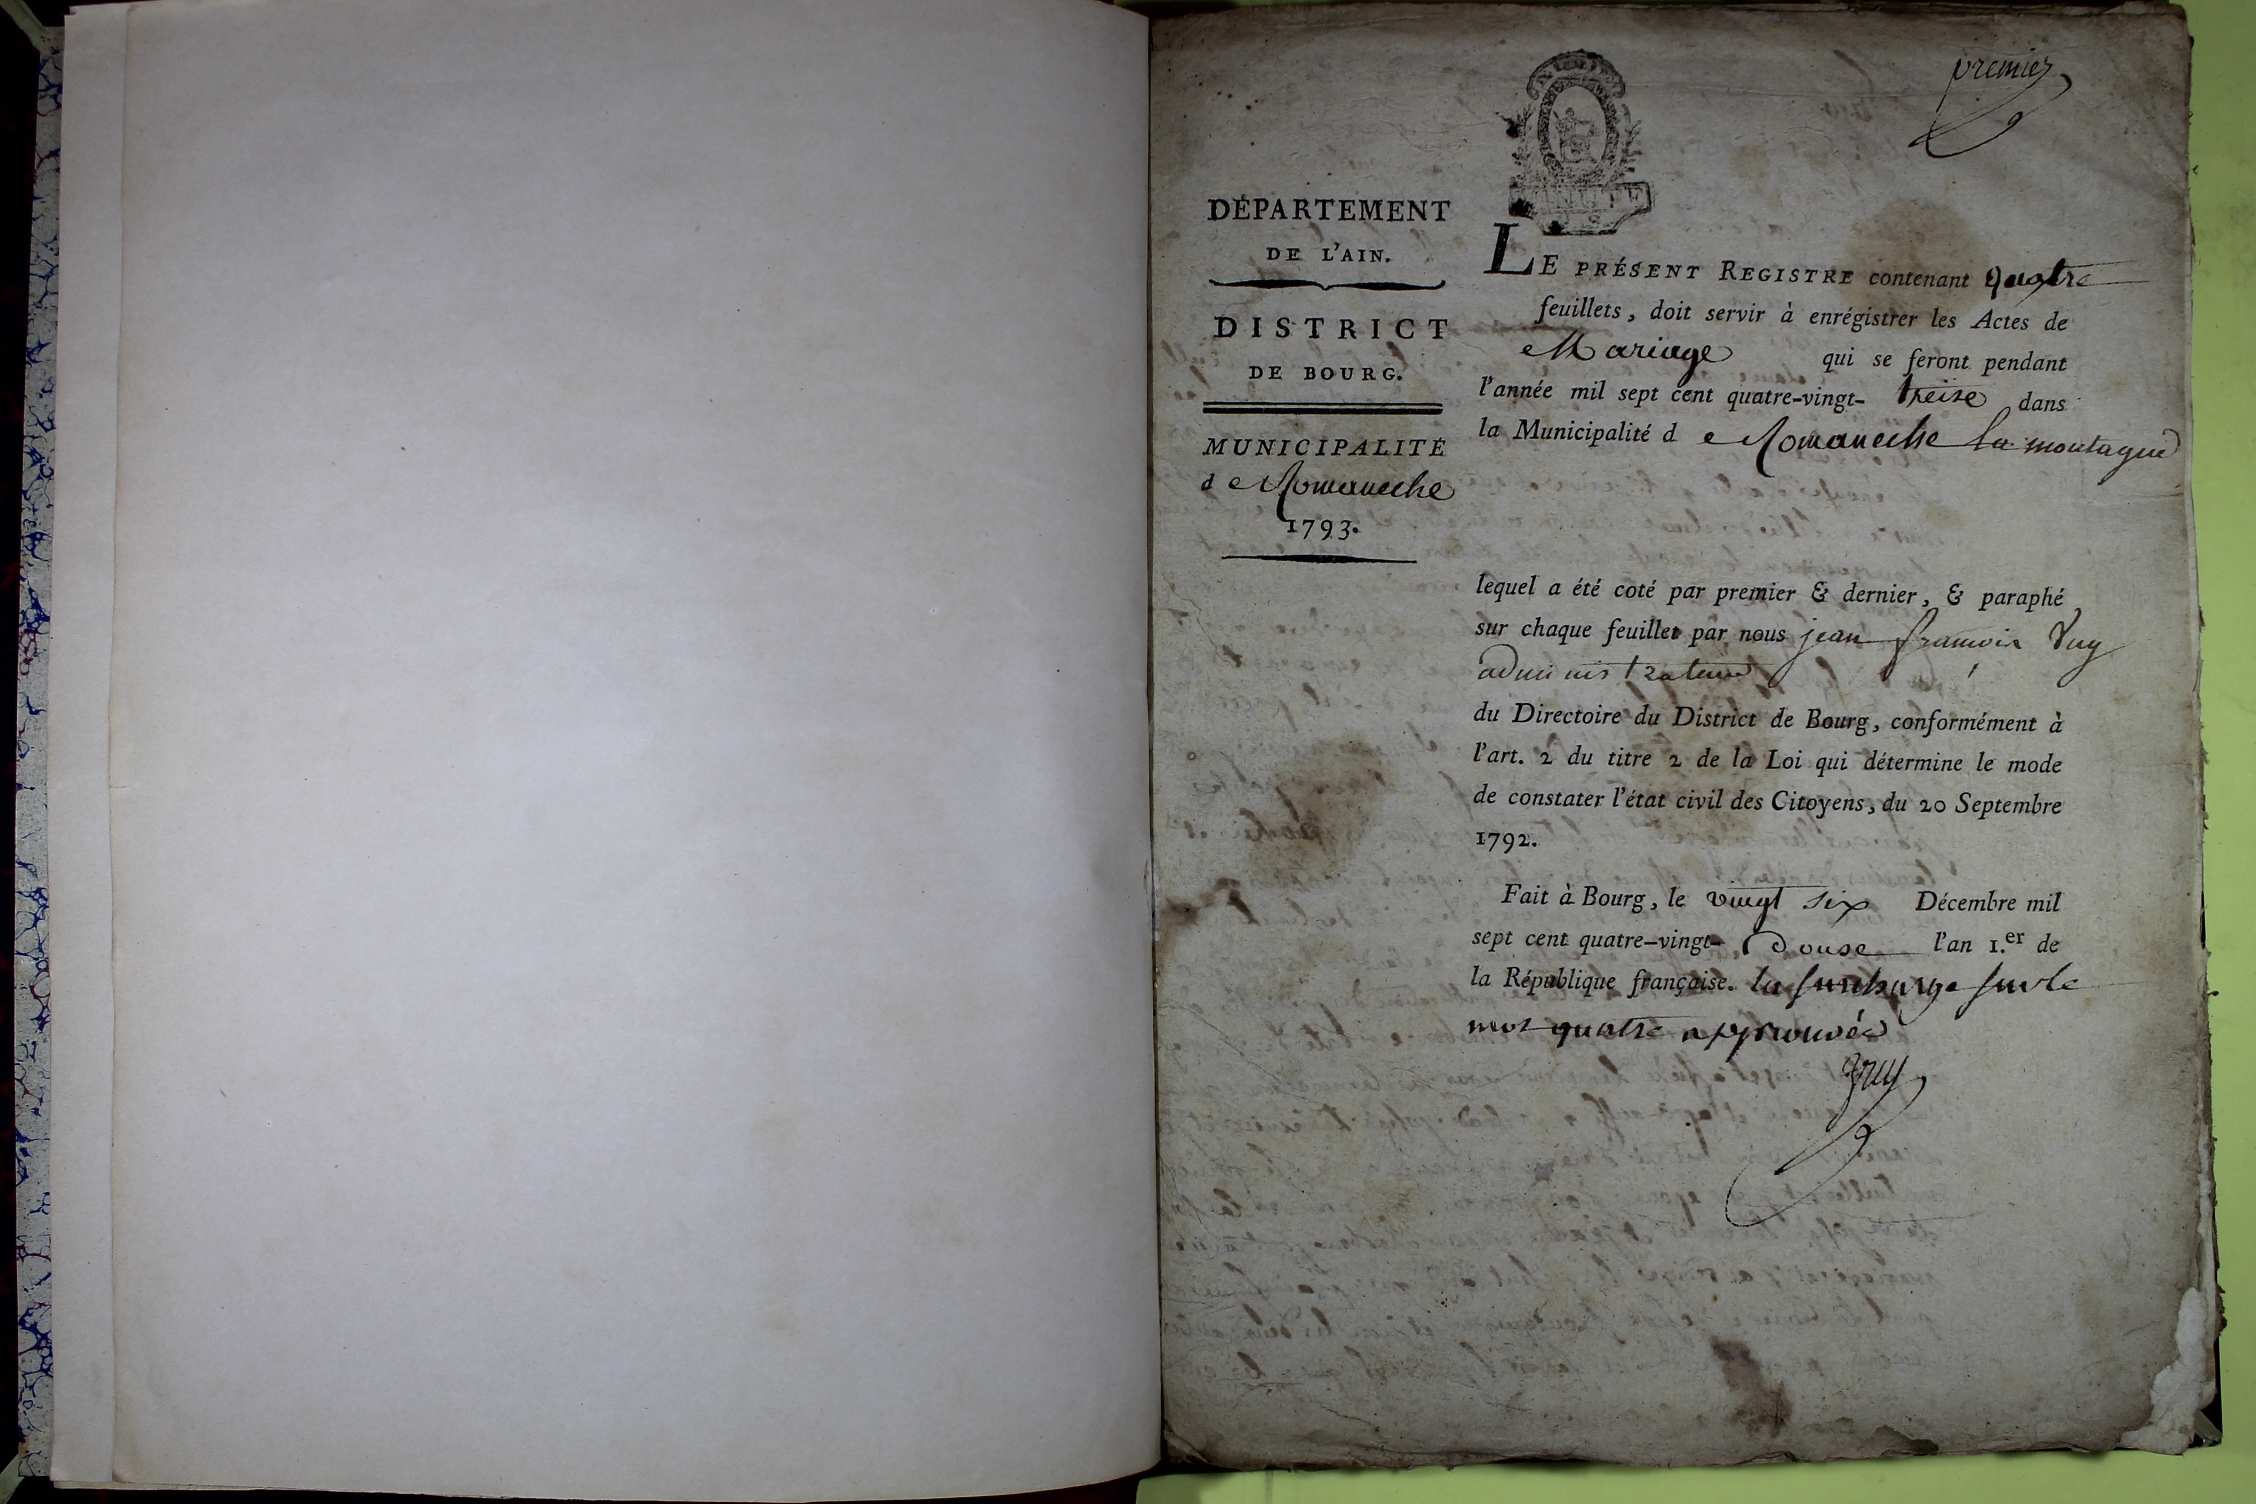 premier
DÉPARTEMENT
DE L'AIN.
DISTRICT
DE BOURG.
MUNICIPALITÉ
d e Romaneche
1793.
LE PRÉSENT REGISTRE contenant quatre
feuillets, doit servir à enrégistrer les Actes de
Mariage qui se feront pendant
l'année mil sept cent quatre-vingt- treize dans
la Municipalité d e Romaneche la montagne
lequel a été coté par premier & dernier, & paraphé
sur chaque feuillet par nous jean francois
administrateur
du Directoire du District de Bourg, conformément à
l'art. 2 du titre 2 de la Loi qui détermine le mode
de constater l'état civil des Citoyens, du 20 Septembre
1792.
Fait à Bourg, le vingt six Décembre mil
sept cent quatre-vingt- douse l'an 1.er de
la République française. la surcharge sur le
mot quatre approuvée